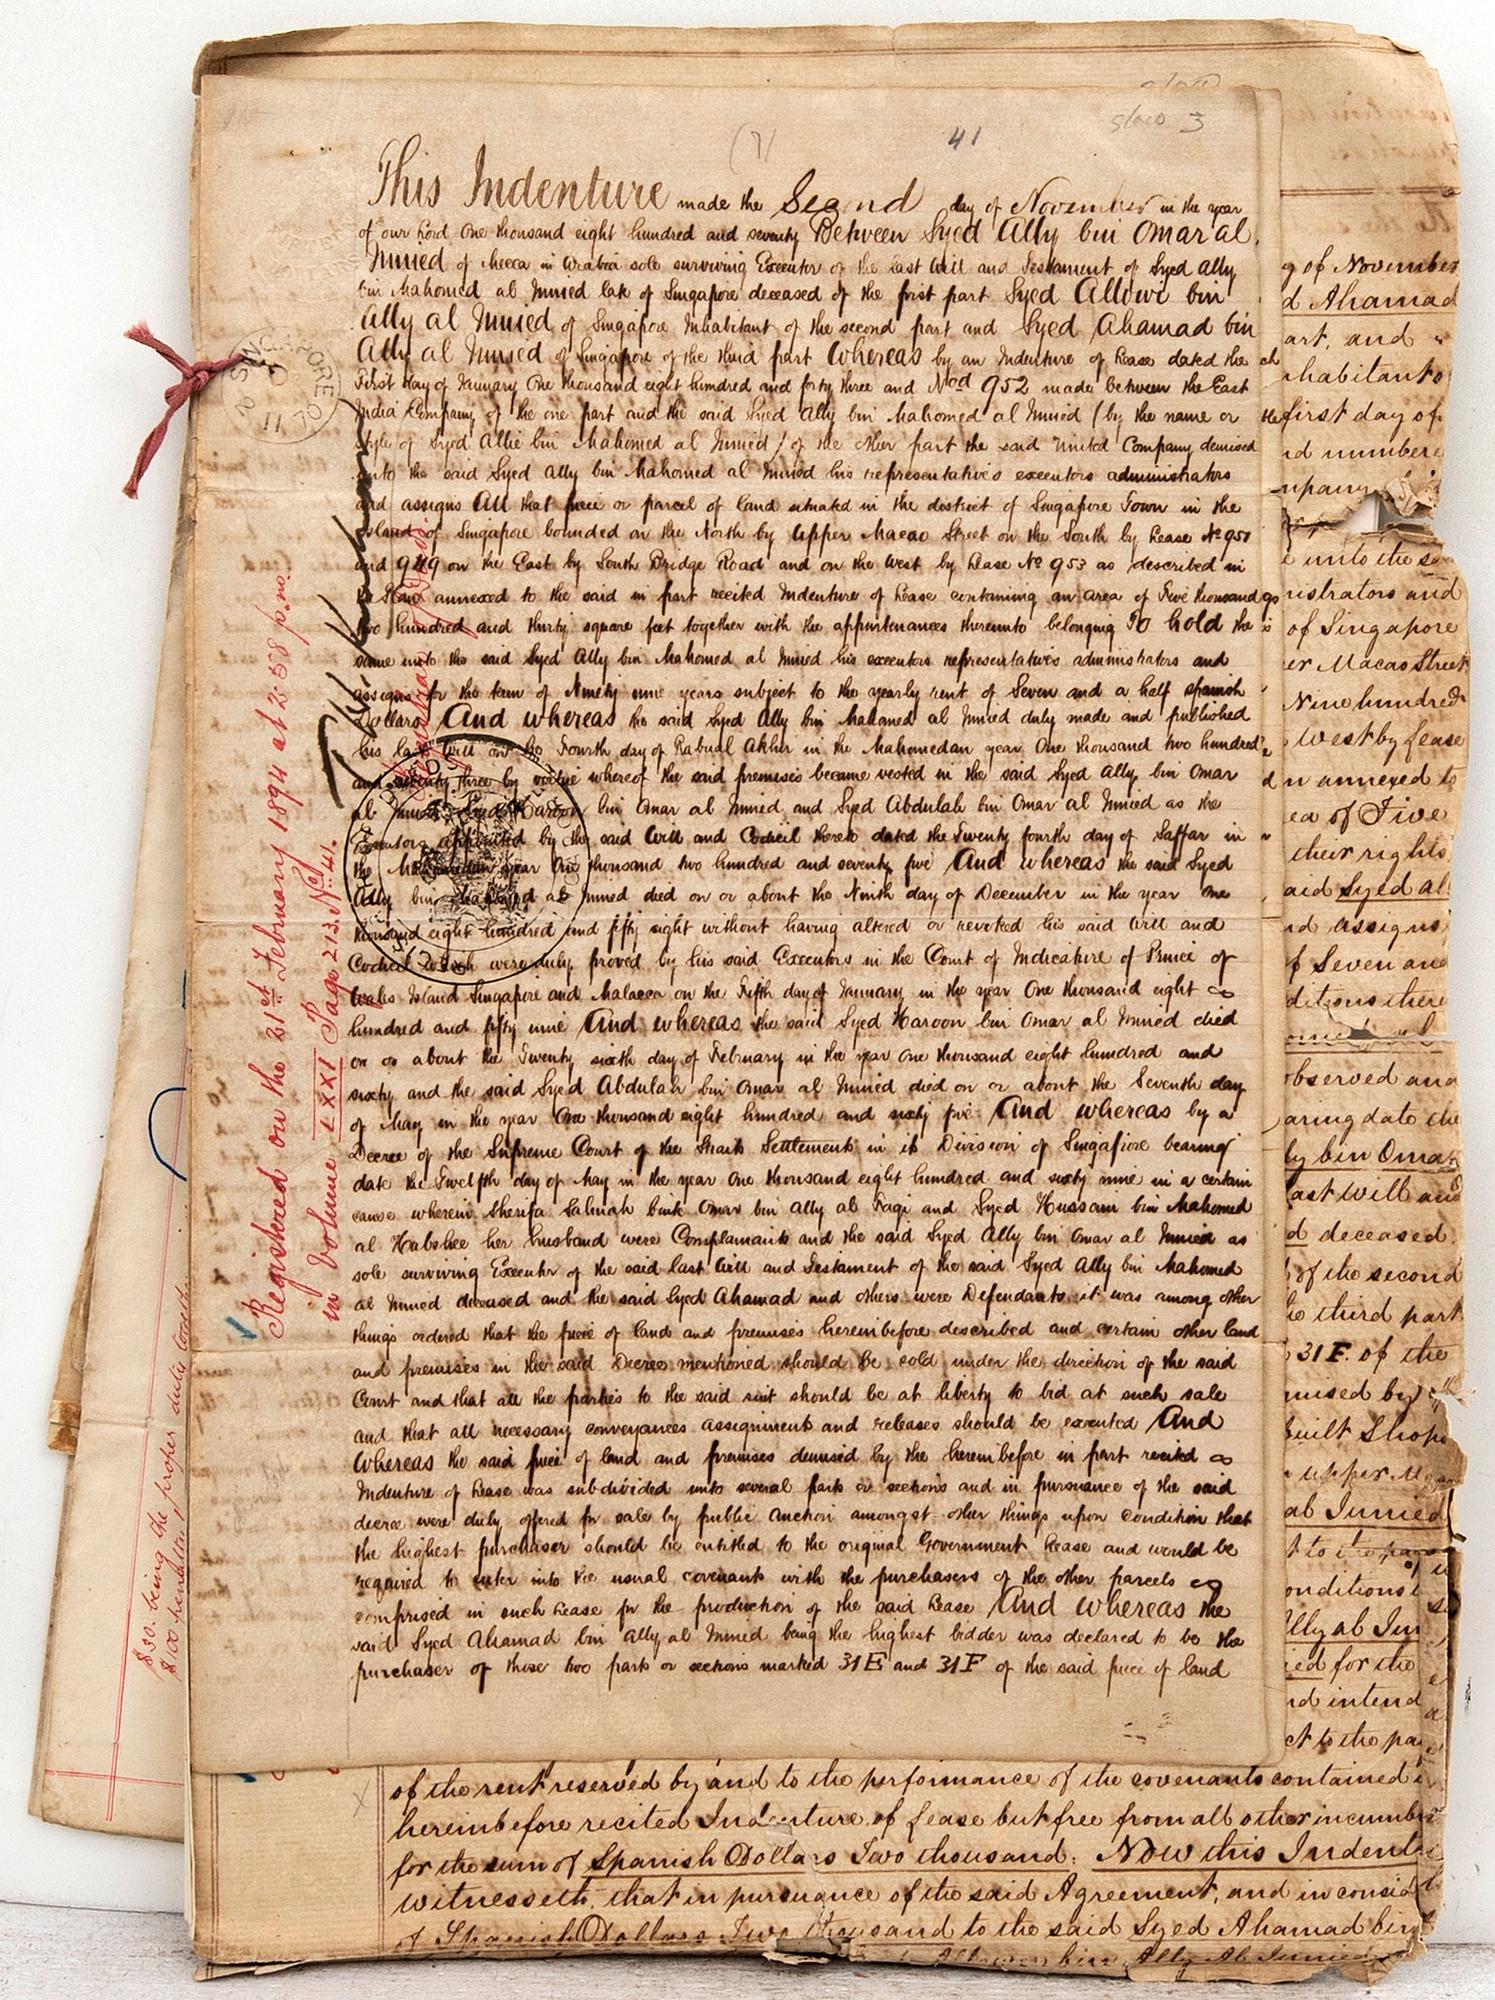 41
3
This Indenture made the Second day of November in the year
of our Lord One thousand eight hundred and seventy Between Syed Ally bin Omar al
Junied of Mecca in Arabia sole surviving Executor of the last Will and Testament of Syed Ally
bin Mahomed al Junied late of Singapore deceased of the first part Syed Allowi bin
Ally al Junied of Singapore Inhabitant of the second part and Syed Ahamad bin
Ally al Junied of Singapore of the third part Whereas by an Indenture of Lease dated the
First day of January One thousand eight hundred and forty three and Nod 952 made between the East
India Company of the one part and the said Syed Ally bin Mahomed al Junied (by the name or
style of Syed Allie bin Mahomed al Junied) of the other part the said United Company demised
unto the said Syed Ally bin Mahomed al Junied his representatives executors administrators
and assigns All that piece or parcel of land situated in the district of Singapore Town in the
Island of Singapore bounded on the North by Upper Macao Street on the South by Lease No 951
and 949 on the East by South Bridge Road and on the West by Lease No 953 as described in
the Plan annexed to the said in part recited Indenture of Lease containing an area of Five thousand
two hundred and thirty square feet together with the appurtenances thereunto belonging To hold the
same unto the said Syed Ally bin Mahomed al Junied his executors representatives administrators and
assigns for the term of Ninety nine years subject to the yearly rent of Seven and a half spanish
Dollars And whereas he said Syed Ally bin Mahomed al Junied duly made and published
his last Will on the Fourth day of Rabual Akhir in the Mahomedan year One thousand two hundred
and seventy three by virtue whereof the said premises became vested in the said Syed Ally bin Omar
al Junied Syed Haroon bin Omar al Junied and Syed Abdulah bin Omar al Junied as the
Executors appointed by the said Will and Codicil thereto dated the Twenty fourth day of Saffar in
the Mahomedan year One thousand two hundred and seventy five And whereas the said Syed
Ally bin Mahomed al Junied died on or about the Ninth day of December in the year One
thousand eight hundred and fifty eight without having altered or revoked his said Will and
Codicil which were duly proved by his said Executors in the Court of Judicature of Prince of
Wales Island Singapore and Malacca on the Fifth day of January in the year One thousand eight
hundred and fifty nine And whereas the said Syed Haroon bin Omar al Junied died
on or about the Twenty sixth day of February in the year One thousand eight hundred and
sixty and the said Syed Abdulah bin Omar al Junied died on or about the Seventh day
of May in the year One thousand eight hundred and sixty five And whereas by a
Decree of the Supreme Court of the Straits Settlements in its Division of Singapore bearing
date the Twelfth day of May in the year One thousand eight hundred and sixty nine in a certain
cause wherein Sherifa Salmah binte Omar bin Ally al Faqi and Syed Hussain bin Mahomed
al Habshee her husband were Complainants and the said Syed Ally bin Omar al Junied as
sole surviving Executor of the said last Will and Testament of the said Syed Ally bin Mahomed
al Junied deceased and the said Syed Ahamad and others were Defendants it was among other
things ordered that the piece of land and premises hereinbefore described and certain other land
and premises in the said Decree mentioned should be sold under the direction of the said
Court and that all the parties to the said suit should be at liberty to bid at such sale
and that all necessary conveyances assignments and releases should be executed And
Whereas the said piece of land and premises demised by the hereinbefore in part recited
Indenture of Lease was subdivided unto several parts or sections and in pursuance of the said
decree were duly offered for sale by public auction amongst other things upon condition that
the highest purchaser should be entitled to the original Government Lease and would be
required to enter into the usual covenants with the purchasers of the other parcels
comprised in such Lease for the production of the said Lease And whereas the
said Syed Ahamad bin Ally al Junied being the highest bidder was declared to be the
purchaser of those two parts or sections marked 31E and 31F of the said piece of land
Registered on the 21st February 1894 at 2.58 p.m.
in Volume LXXI Page 213 No 41.
$30. being the proper duty
$100 penalty
SINGAPORE
g of November
d Ahamad
art, and
nhabitant o
first day of
nd number
mpany
e unto the
nistrators and
of Singapore
er Macao Street
Nine hundred
West by lease
n annexed to
ea of Five
their rights
aid Syed al
nd assigns
f Seven and
ditions there
observed and
aring date the
ly bin Omar
ast Will and
d deceased
of the second
he third part
31F. of the
mised by
built Shop
upper M
al Junied
t to the pay
onditions
Ally al Jun
ied for the
nd intend
ct to the pa
of the rent reserved by and to the performance of the covenants contained
hereinbefore recited Indenture of lease but free from all other incumbr
for the sum of Spanish Dollars Two thousand. Now this Indent
witnesseth that in pursuance of the said Agreement, and in consid
of Spanish Dollars Two thousand to the said Syed Ahamad bin
Ally Al Junied